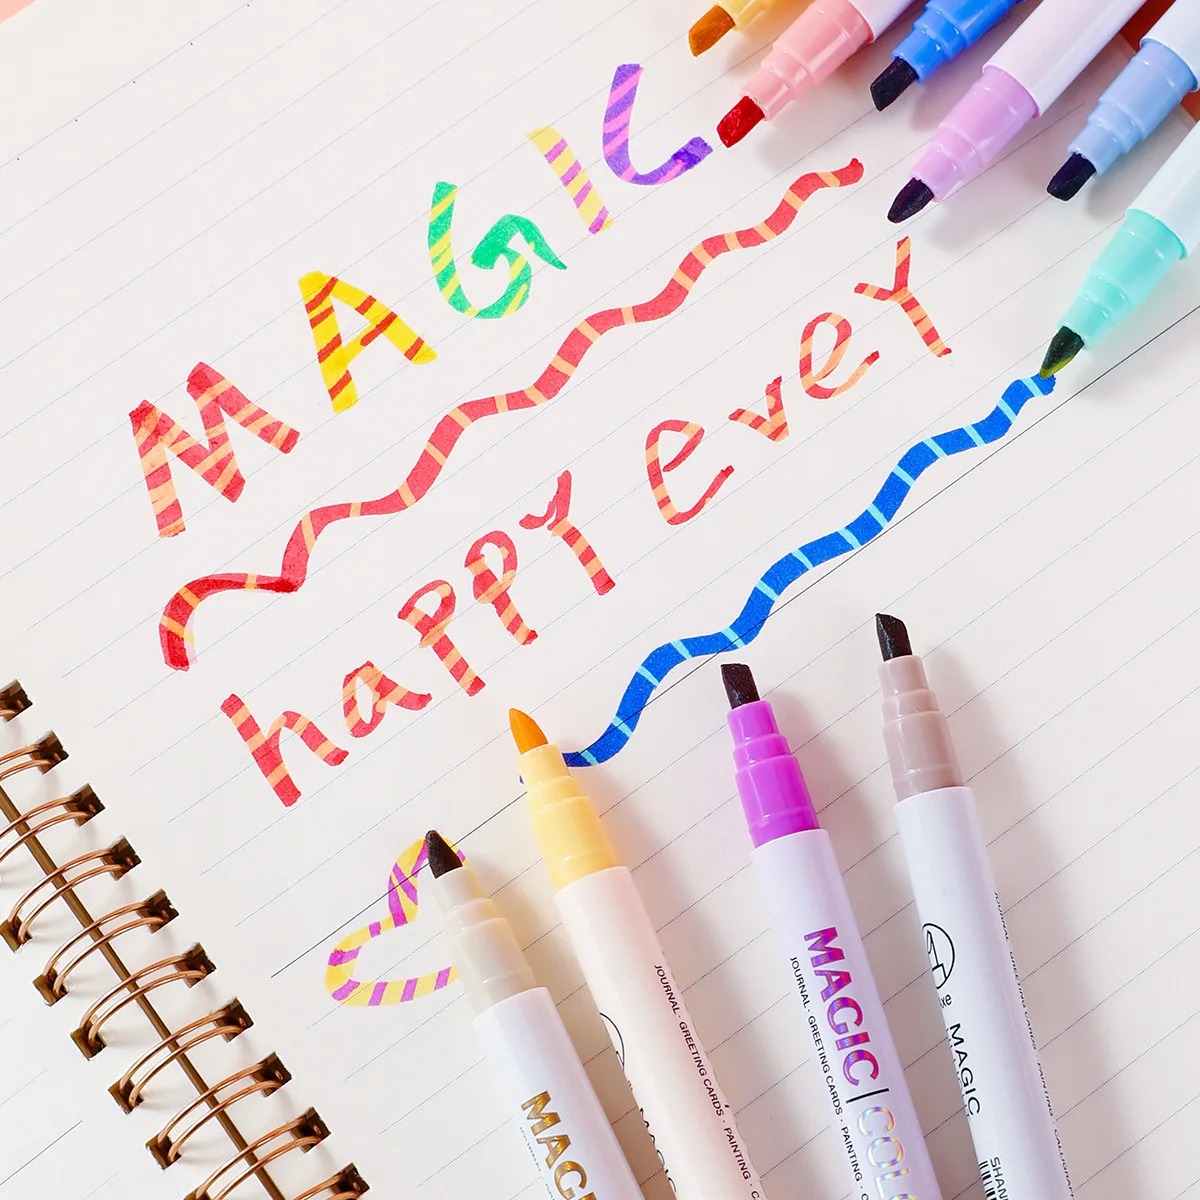 MAGIC
happy every
MAGIC
JOURNAL · GREETING CARDS · PAINTING ·
MAGIC | COLO
JOURNAL · GREETING CARDS · PAINTING ·
MAGIC
JOURNAL · GREETING CARDS · PAINTING
SHAN